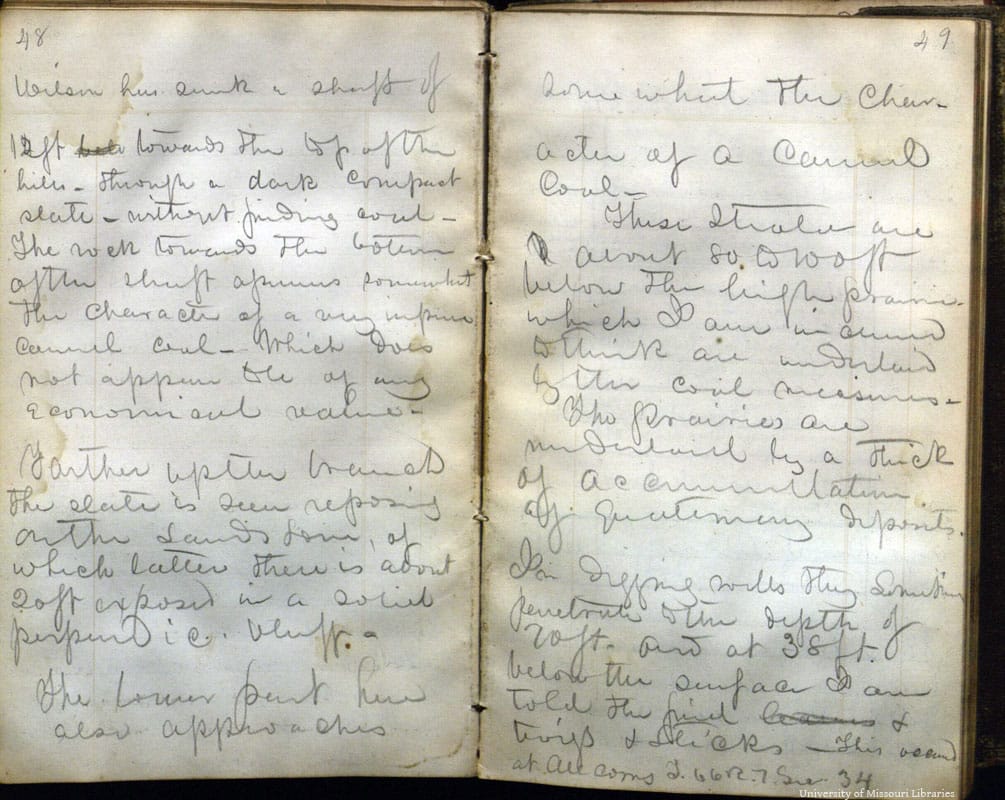 48
Wilson has sunk a shaft of
12ft towards the top of the
hills - through a dark compact
slate - without finding coal -
The rock towards the bottom
of the shaft assumes somewhat
the character of a very inferior
cannel coal - Which does
not appear to be of any
Economical value -
Farther up the branch
the slate is seen reposing
on the Sandstone, of
which latter there is about
20ft exposed in a solid
perpendic. bluff. -
The lower part here
also approaches
49
Some what the Char-
acter of a Cannel
Coal -
These Strata are
about 80 to 100 ft
below the high prairie -
which I am inclined
to think are underlaid
by the coal measures -
The prairies are
underlaid by a thick
of accumulation
of Quaternary deposits.
In digging wells they Sometimes
penetrate to the depth of
70ft. and at 38ft.
below the surface I am
told the find leaves &
twigs & sticks - This
at T. 66 R. 7. Sec. 34
University of Missouri Libraries